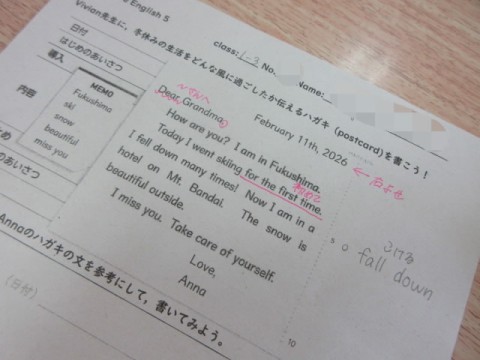 English 5
class: 1-3 No. Name:
Vivian先生に,冬休みの生活をどんな風に過ごしたか伝えるハガキ (postcard)を書こう!
日付
はじめのあいさつ
導入
内容
MEMO
Fukushima
ski
snow
beautiful
miss you
February 11th, 2026
←右よせ
〜さんへ
Dear Grandma,
How are you? I am in Fukushima.
初めて
Today I went skiing for the first time.
I fell down many times! Now I am in a
hotel on Mt. Bandai. The snow is
beautiful outside.
I miss you. Take care of yourself.
Love,
Anna
こける
fall down
10
のあいさつ
Annaのハガキの文を参考にして,書いてみよう。
(日付)